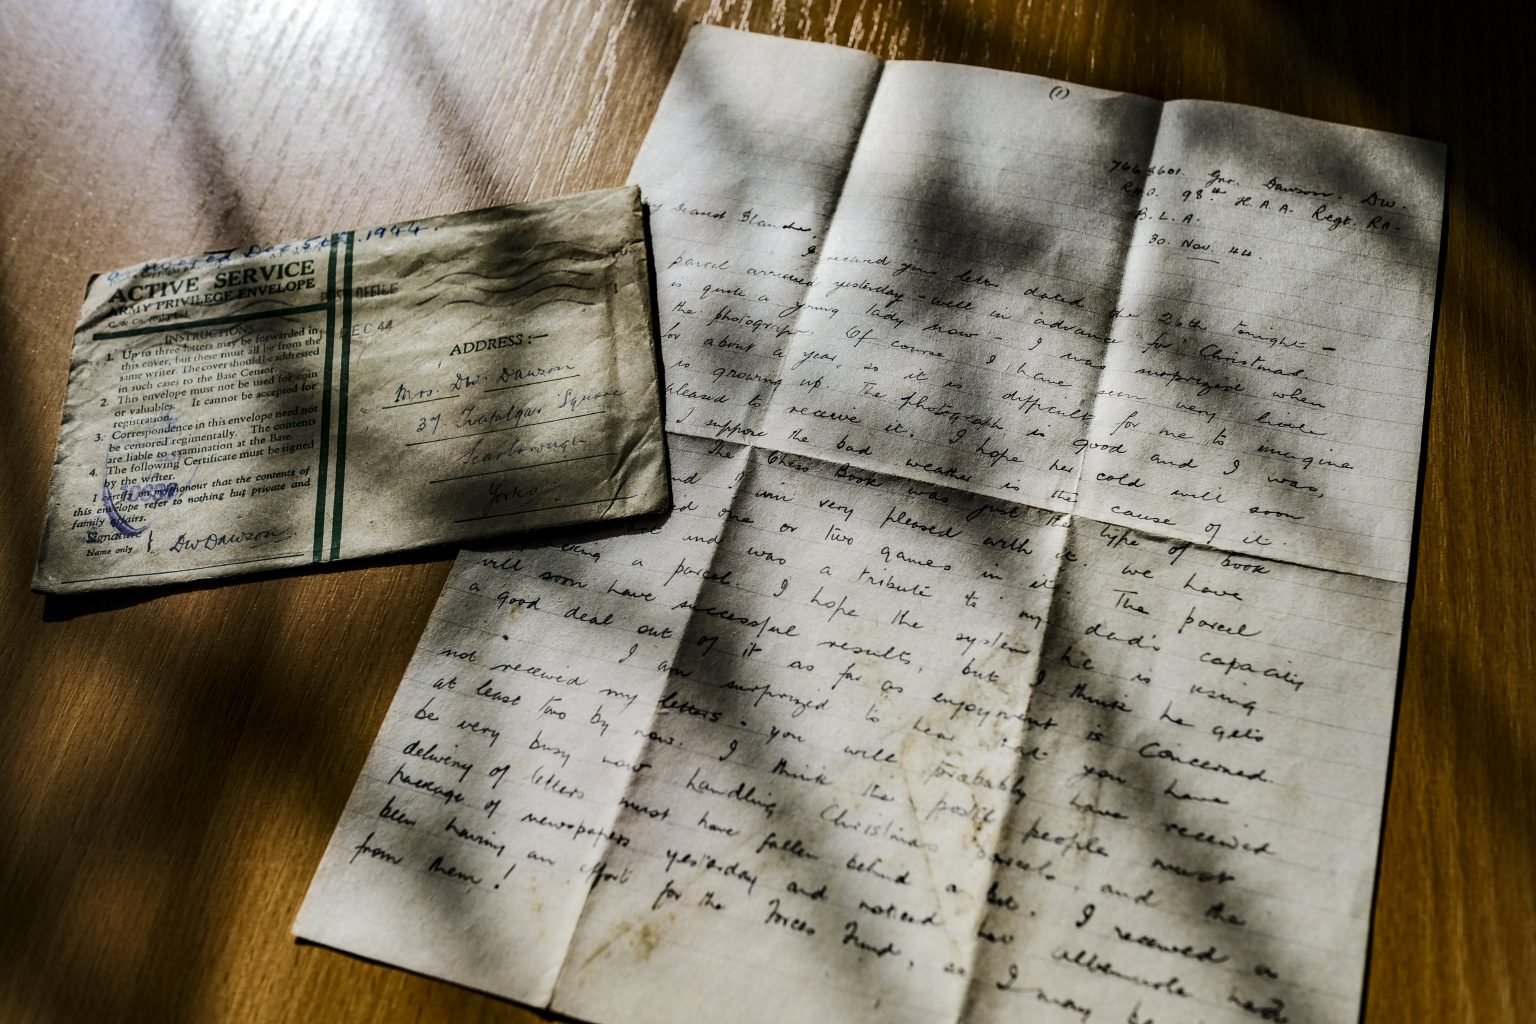 answered Dec. 5th. 1944.
ACTIVE SERVICE
ARMY PRIVILEGE ENVELOPE
INSTRUCTIONS
1. Up to three letters may be forwarded in
this cover, but these must all be from the
same writer. The cover should be addressed
in such cases to the Base Censor.
2. This envelope must not be used for coin
or valuables. It cannot be accepted for
registration.
3. Correspondence in this envelope need not
be censored regimentally. The contents
are liable to examination at the Base.
4. The following Certificate must be signed
by the writer.
I certify on my honour that the contents of
this envelope refer to nothing but private and
family affairs.
Signature
Name only
DW Dawson
POST OFFICE
DEC 44
ADDRESS:—
Mrs. DW. Dawson
37. Trafalgar Square
Scarborough
Yorks.
(1)
Gnr. Dawson. DW.
R.H.Q. 98th H.A.A. Regt. RA.
B.L.A.
30. Nov. 44.
Dearest Blanche,
I received your letter dated the 26th tonight –
parcel arrived yesterday – well in advance for Christmas.
is quite a young lady now – I was surprized when
the photograph. Of course, I have seen very little
for about a year so it is difficult for me to imagine
is growing up. The photograph is good and I was,
pleased to receive it. I hope her cold will soon
I suppose the bad weather is the cause of it.
The Chess Book was just the type of book
and I am very pleased with it. We have
one or two games in it. The parcel
and was a tribute to my dad's capacity
a parcel. I hope the system he is using
will soon have successful results, but I think he gets
a good deal out of it as far as enjoyment is concerned.
I am surprized to hear that you have
not received my letters – you will probably have received
at least two by now. I think the postal people must
be very busy now handling Christmas parcels, and the
delivery of letters must have fallen behind a bit. I received a
package of newspapers yesterday and noticed had
been having an effort for the Forces Fund, so I may
from them!